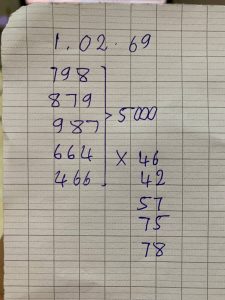 1.02.69
798
879
987 > 5000
664 X 46
466 42
57
75
78